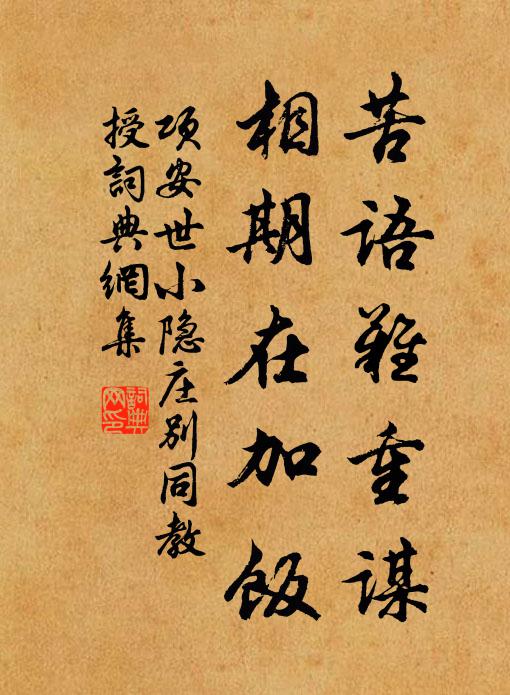 苦语难重谋
相期在加飯
项安世小隐庄别同教
授詞典網集
詞典網印